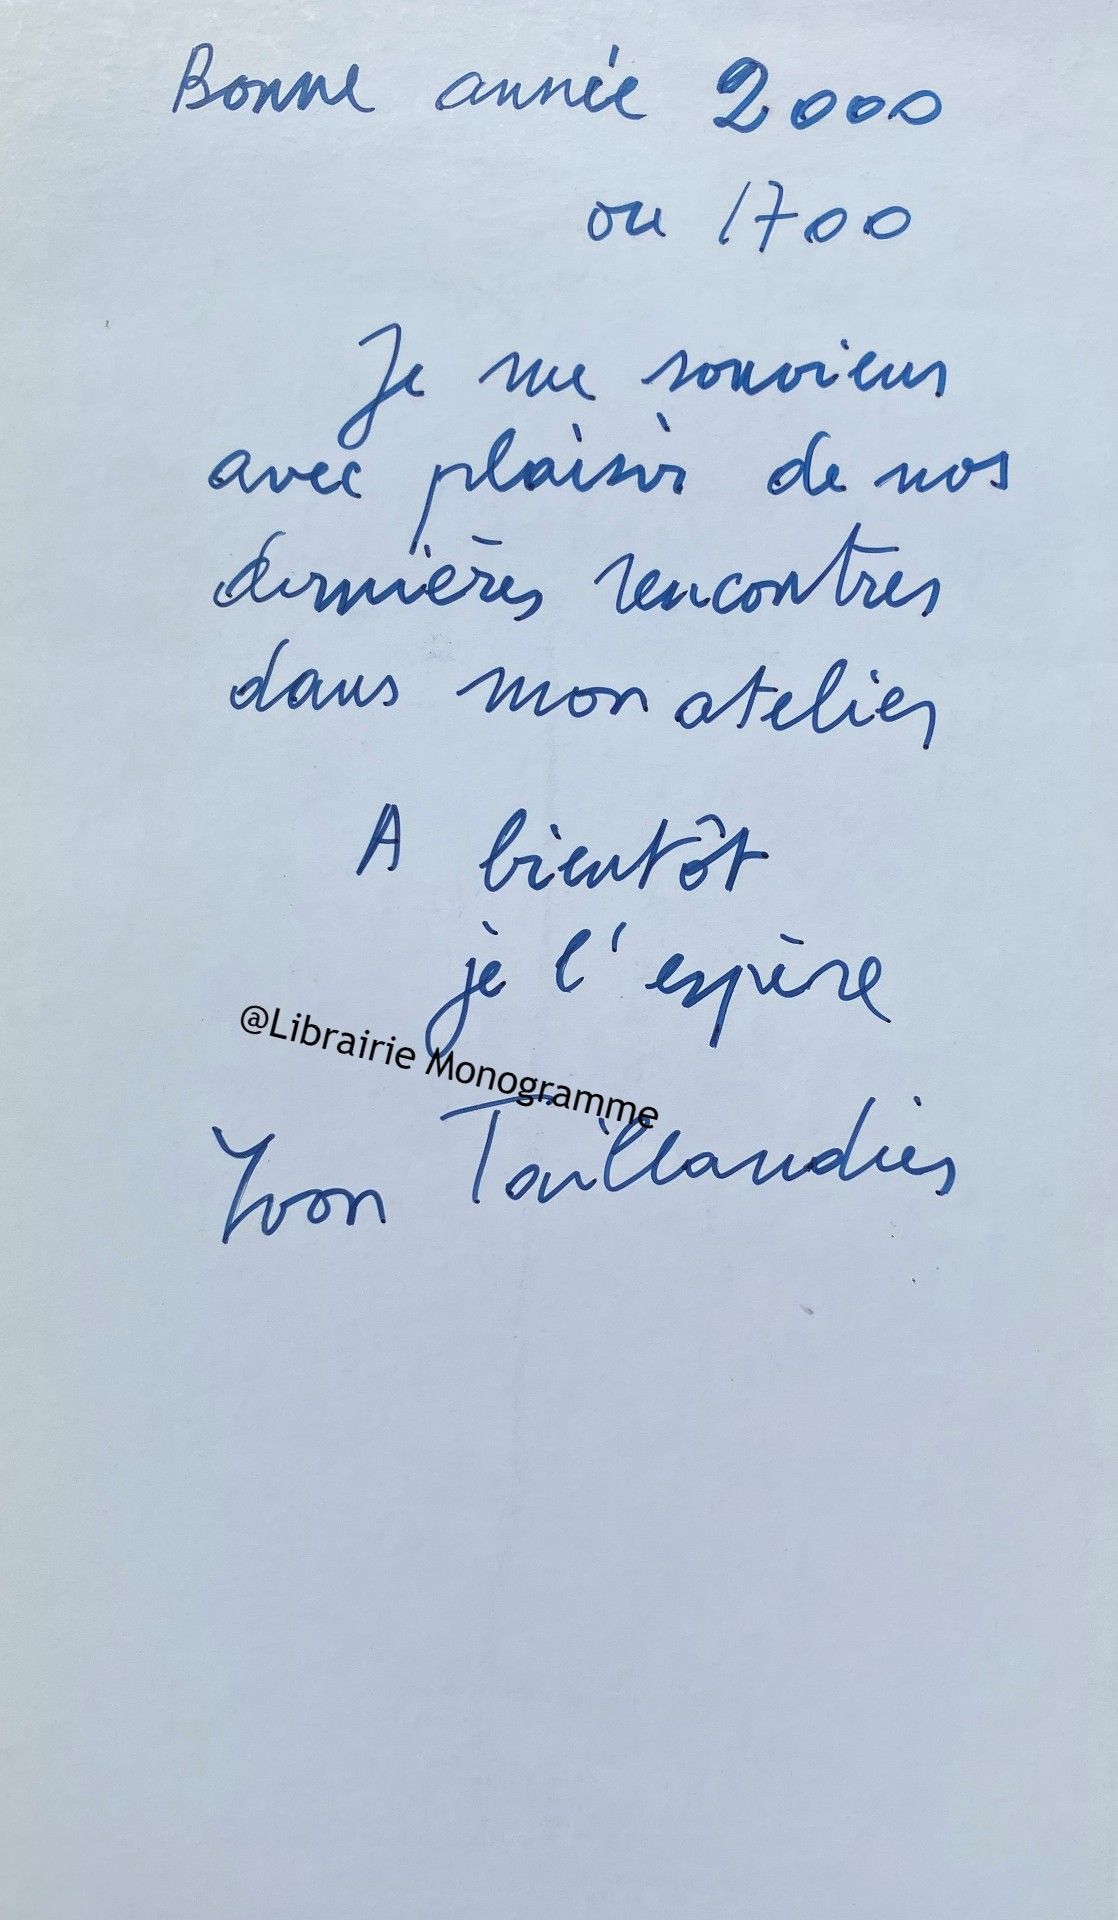 Bonne année 2000
ou 1700
Je me souviens
avec plaisir de nos
dernières rencontres
dans mon atelier
A bientôt
je l'espère
@Librairie Monogramme
Yvon Taillandier